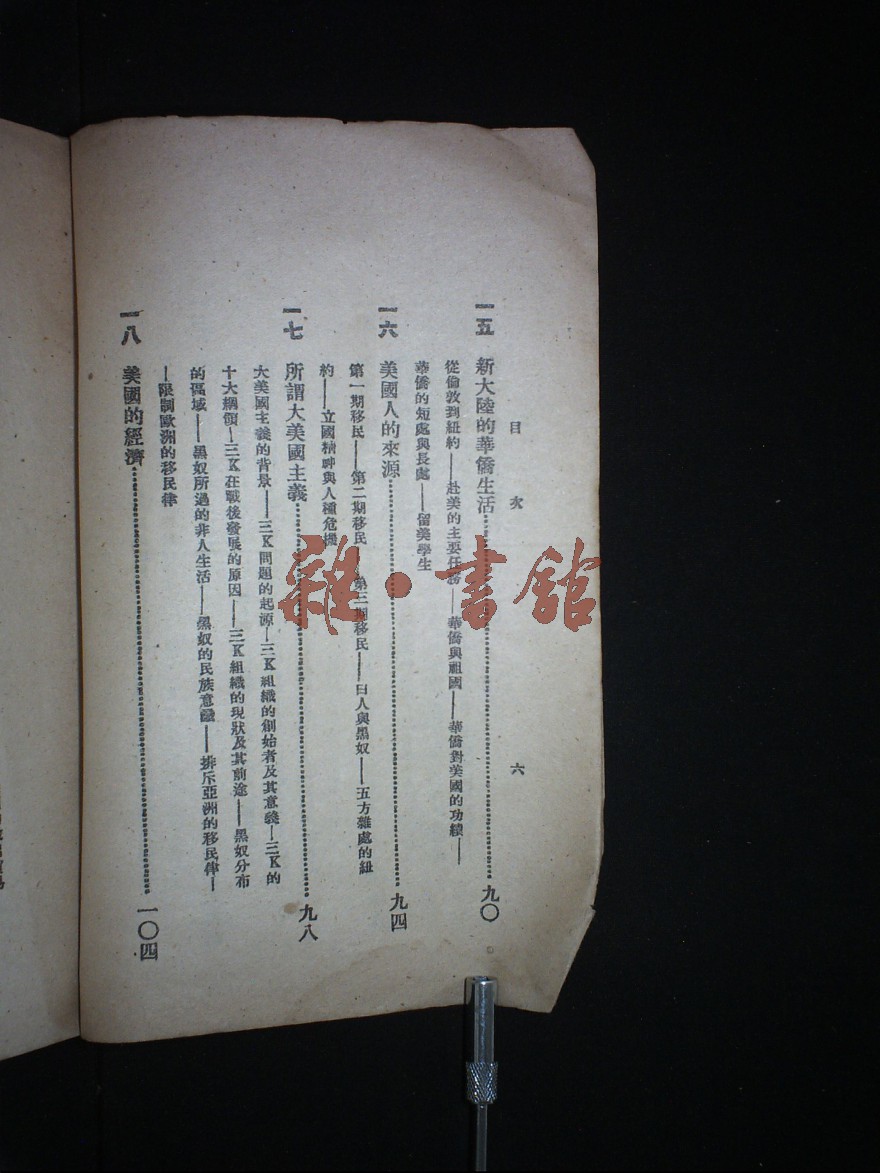 目次
六
一五 新大陸的華僑生活……九〇
從倫敦到紐約——赴美的主要任務——華僑與祖國——華僑對美國的功績——
華僑的短處與長處——留美學生
一六 美國人的來源……九四
第一期移民——第二期移民——第三期移民——白人與黑奴——五方雜處的紐
約——立國精神與人種危機
一七 所謂大美國主義……九八
大美國主義的背景——三K問題的起源—三K組織的創始者及其意義—三K的
十大綱領—三K在戰後發展的原因——三K組織的現狀及其前途——黑奴分布
的區域——黑奴所過的非人生活——黑奴的民族意識——排斥亞洲的移民律—
—限制歐洲的移民律
一八 美國的經濟……一〇四
雜·書館